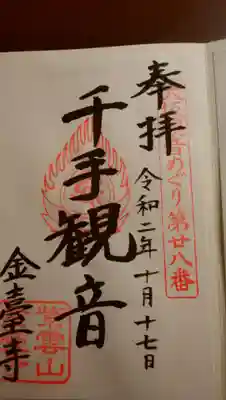 奉拝
令和二年十月十七日
音めぐり第廿八番
千手観音
紫雲山
金臺寺